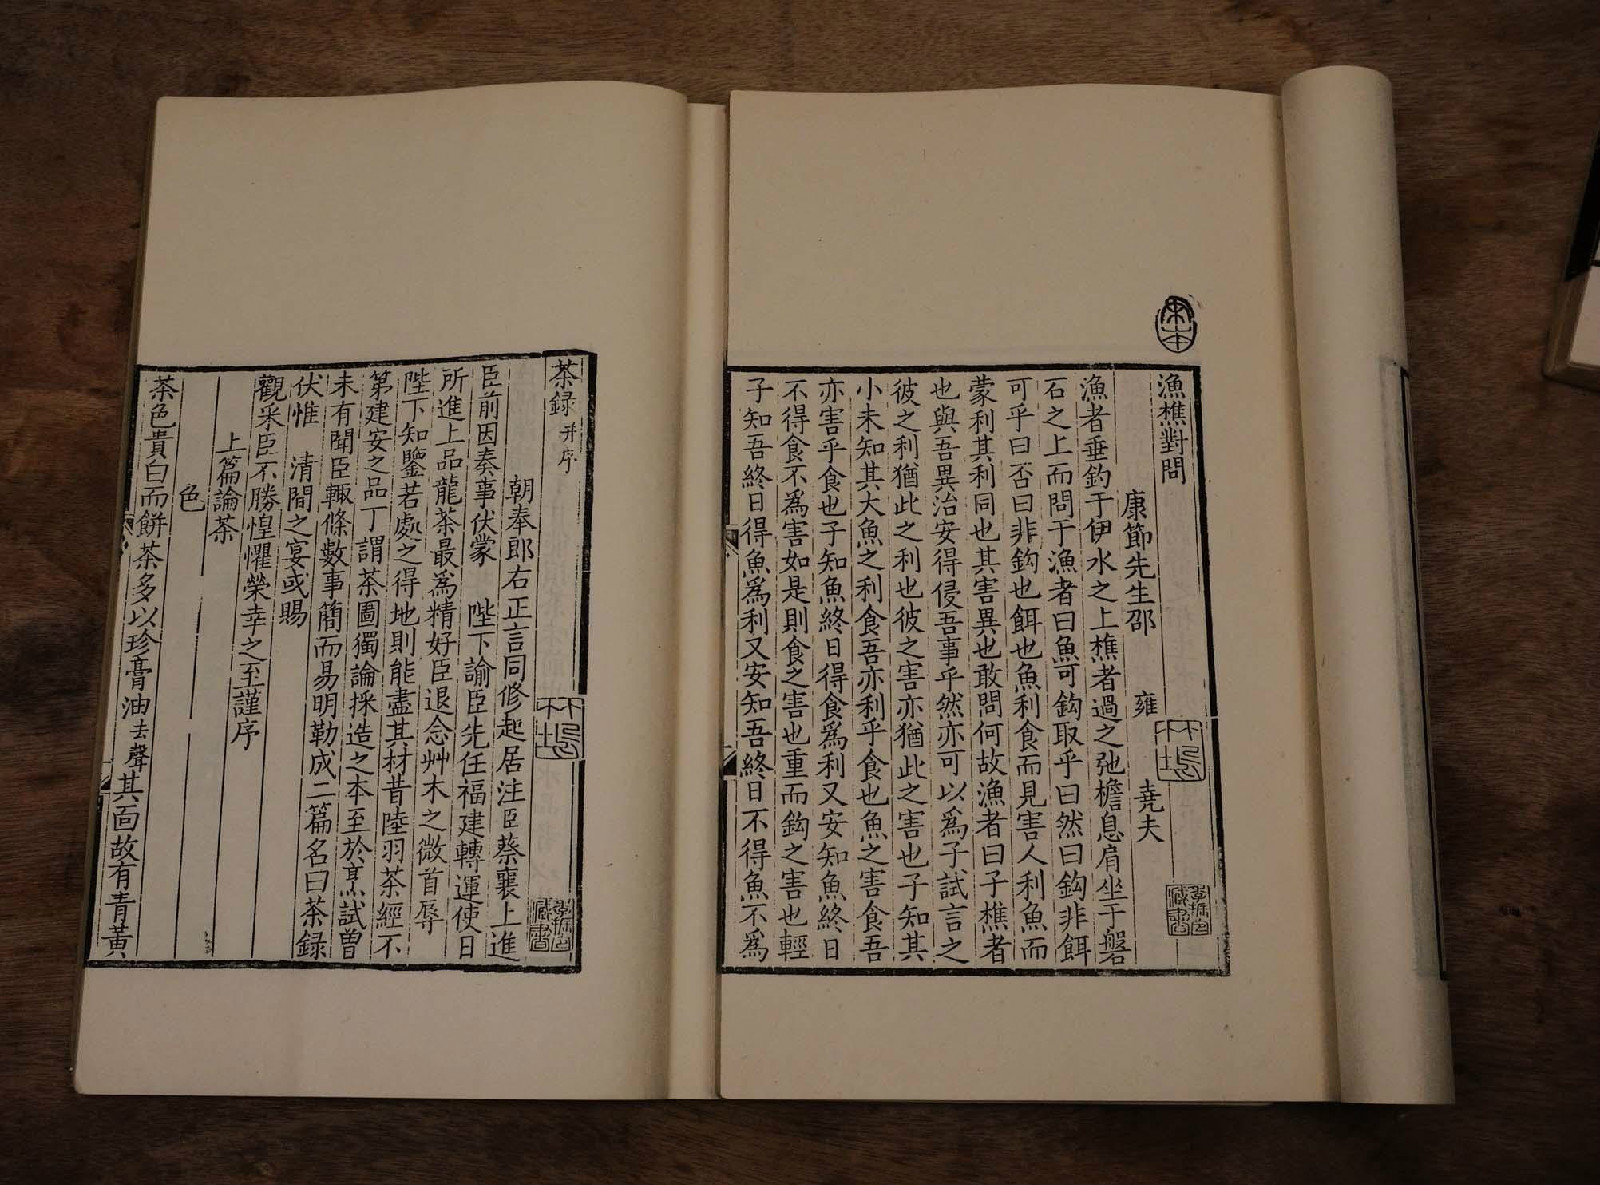 漁樵對問
康節先生邵 雍 堯夫
漁者垂釣于伊水之上樵者過之弛檐息肩坐于磐
石之上而問于漁者曰魚可鈎取乎曰然曰鈎非餌
可乎曰否曰非鈎也餌也魚利食而見害人利魚而
蒙利其利同也其害異也敢問何故漁者曰子樵者
也與吾異治安得侵吾事乎然亦可以為子試言之
彼之利猶此之利也彼之害亦猶此之害也子知其
小未知其大魚之利食吾亦利乎食也魚之害食吾
亦害乎食也子知魚終日得食為利又安知魚終日
不得食不為害如是則食之害也重而鈎之害也輕
子知吾終日得魚為利又安知吾終日不得魚不為
宋本
茶録并序
朝奉郎右正言同修起居注臣蔡襄上進
臣前因奏事伏蒙 陛下諭臣先任福建轉運使日
所進上品龍茶最為精好臣退念艸木之微首辱
陛下知鑒若處之得地則能盡其材昔陸羽茶經不
第建安之品丁謂茶圖獨論採造之本至於烹試曾
未有聞臣輒條數事簡而易明勒成二篇名曰茶録
伏惟 清閒之宴或賜
觀采臣不勝惶懼榮幸之至謹序
上篇論茶
色
茶色貴白而餅茶多以珍膏油去聲其面故有青黃